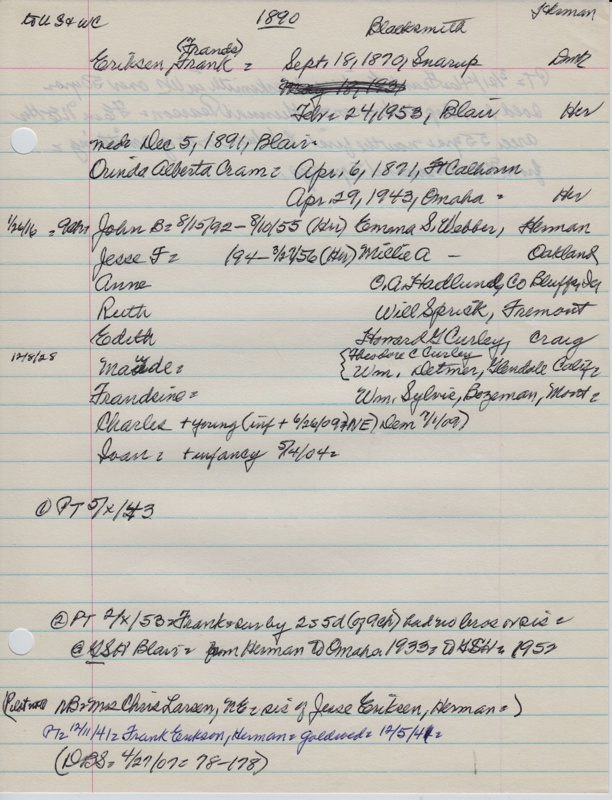 to U.S. & WC 1890 Blacksmith Herman
(Frands)
Eriksen, Frank = Sept. 18, 1870, Snarup Dmk
Feb = 24, 1953, Blair Her
md = Dec 5, 1891, Blair =
Orinda Alberta Cram = Apr. 6, 1871, Ft Calhoun
Apr. 29, 1943, Omaha = Her
1/26/16 = John B = 8/15/92 - 8/10/55 (Her) Emma S. Webber, Herman
Jesse F = /94 - 3/27/56 (Her) Millie A - Oakland
Anne C.A. Hadlund, Co Bluffs, Ia
Ruth Will Sprick, Fremont
Edith Howard G Curley, Craig
12/8/28 Maude = {Theodore C Curley
{Wm. Detmer, Glendale Calif =
Frandsine = Wm. Sylvis, Bozeman, Mont =
Charles + young (inf + 6/26/09 = NE) Dem 7/1/09)
Ivan = + infancy 5/4/04 =
① PT 5/x/43
② PT 2/x/53 = Frank = sur by 2s 5d (of 9ch) had no bros or sis =
@ Blair = from Herman to Omaha 1933 = to = 1952
( NB = Mrs Chris Larsen, NE = sis of Jesse Eriksen, Herman = )
PT = 12/11/41 = Frank Erikson, Herman = goldwed = 12/5/41 =
(DBS = 4/27/07 = 78-178)